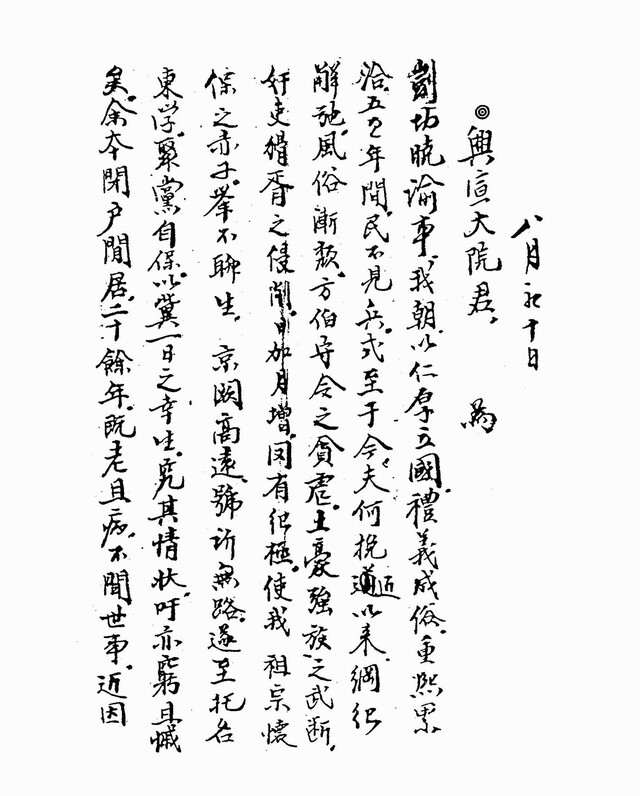 八月初十日
◎興宣大院君, 爲
坊曉諭事, 我朝以仁厚立國, 禮義成俗, 重熙累
洽, 五百年間, 民不見兵, 式至于今, 夫何挽近以來, 綱紀
解弛, 風俗漸頹, 方伯守令之貪虐, 土豪强族之武斷,
奸吏猾胥之侵削, 日加月增, 罔有紀極, 使我 祖宗懷
保之赤子, 擧不聊生, 京闕高遠, 號訴無路, 遂至托名
東學, 聚黨自保, 以冀一日之幸生, 究其情狀, 吁亦窮且慽
矣, 余本閉戶閒居, 二十餘年, 旣老且病, 不聞世事, 近因